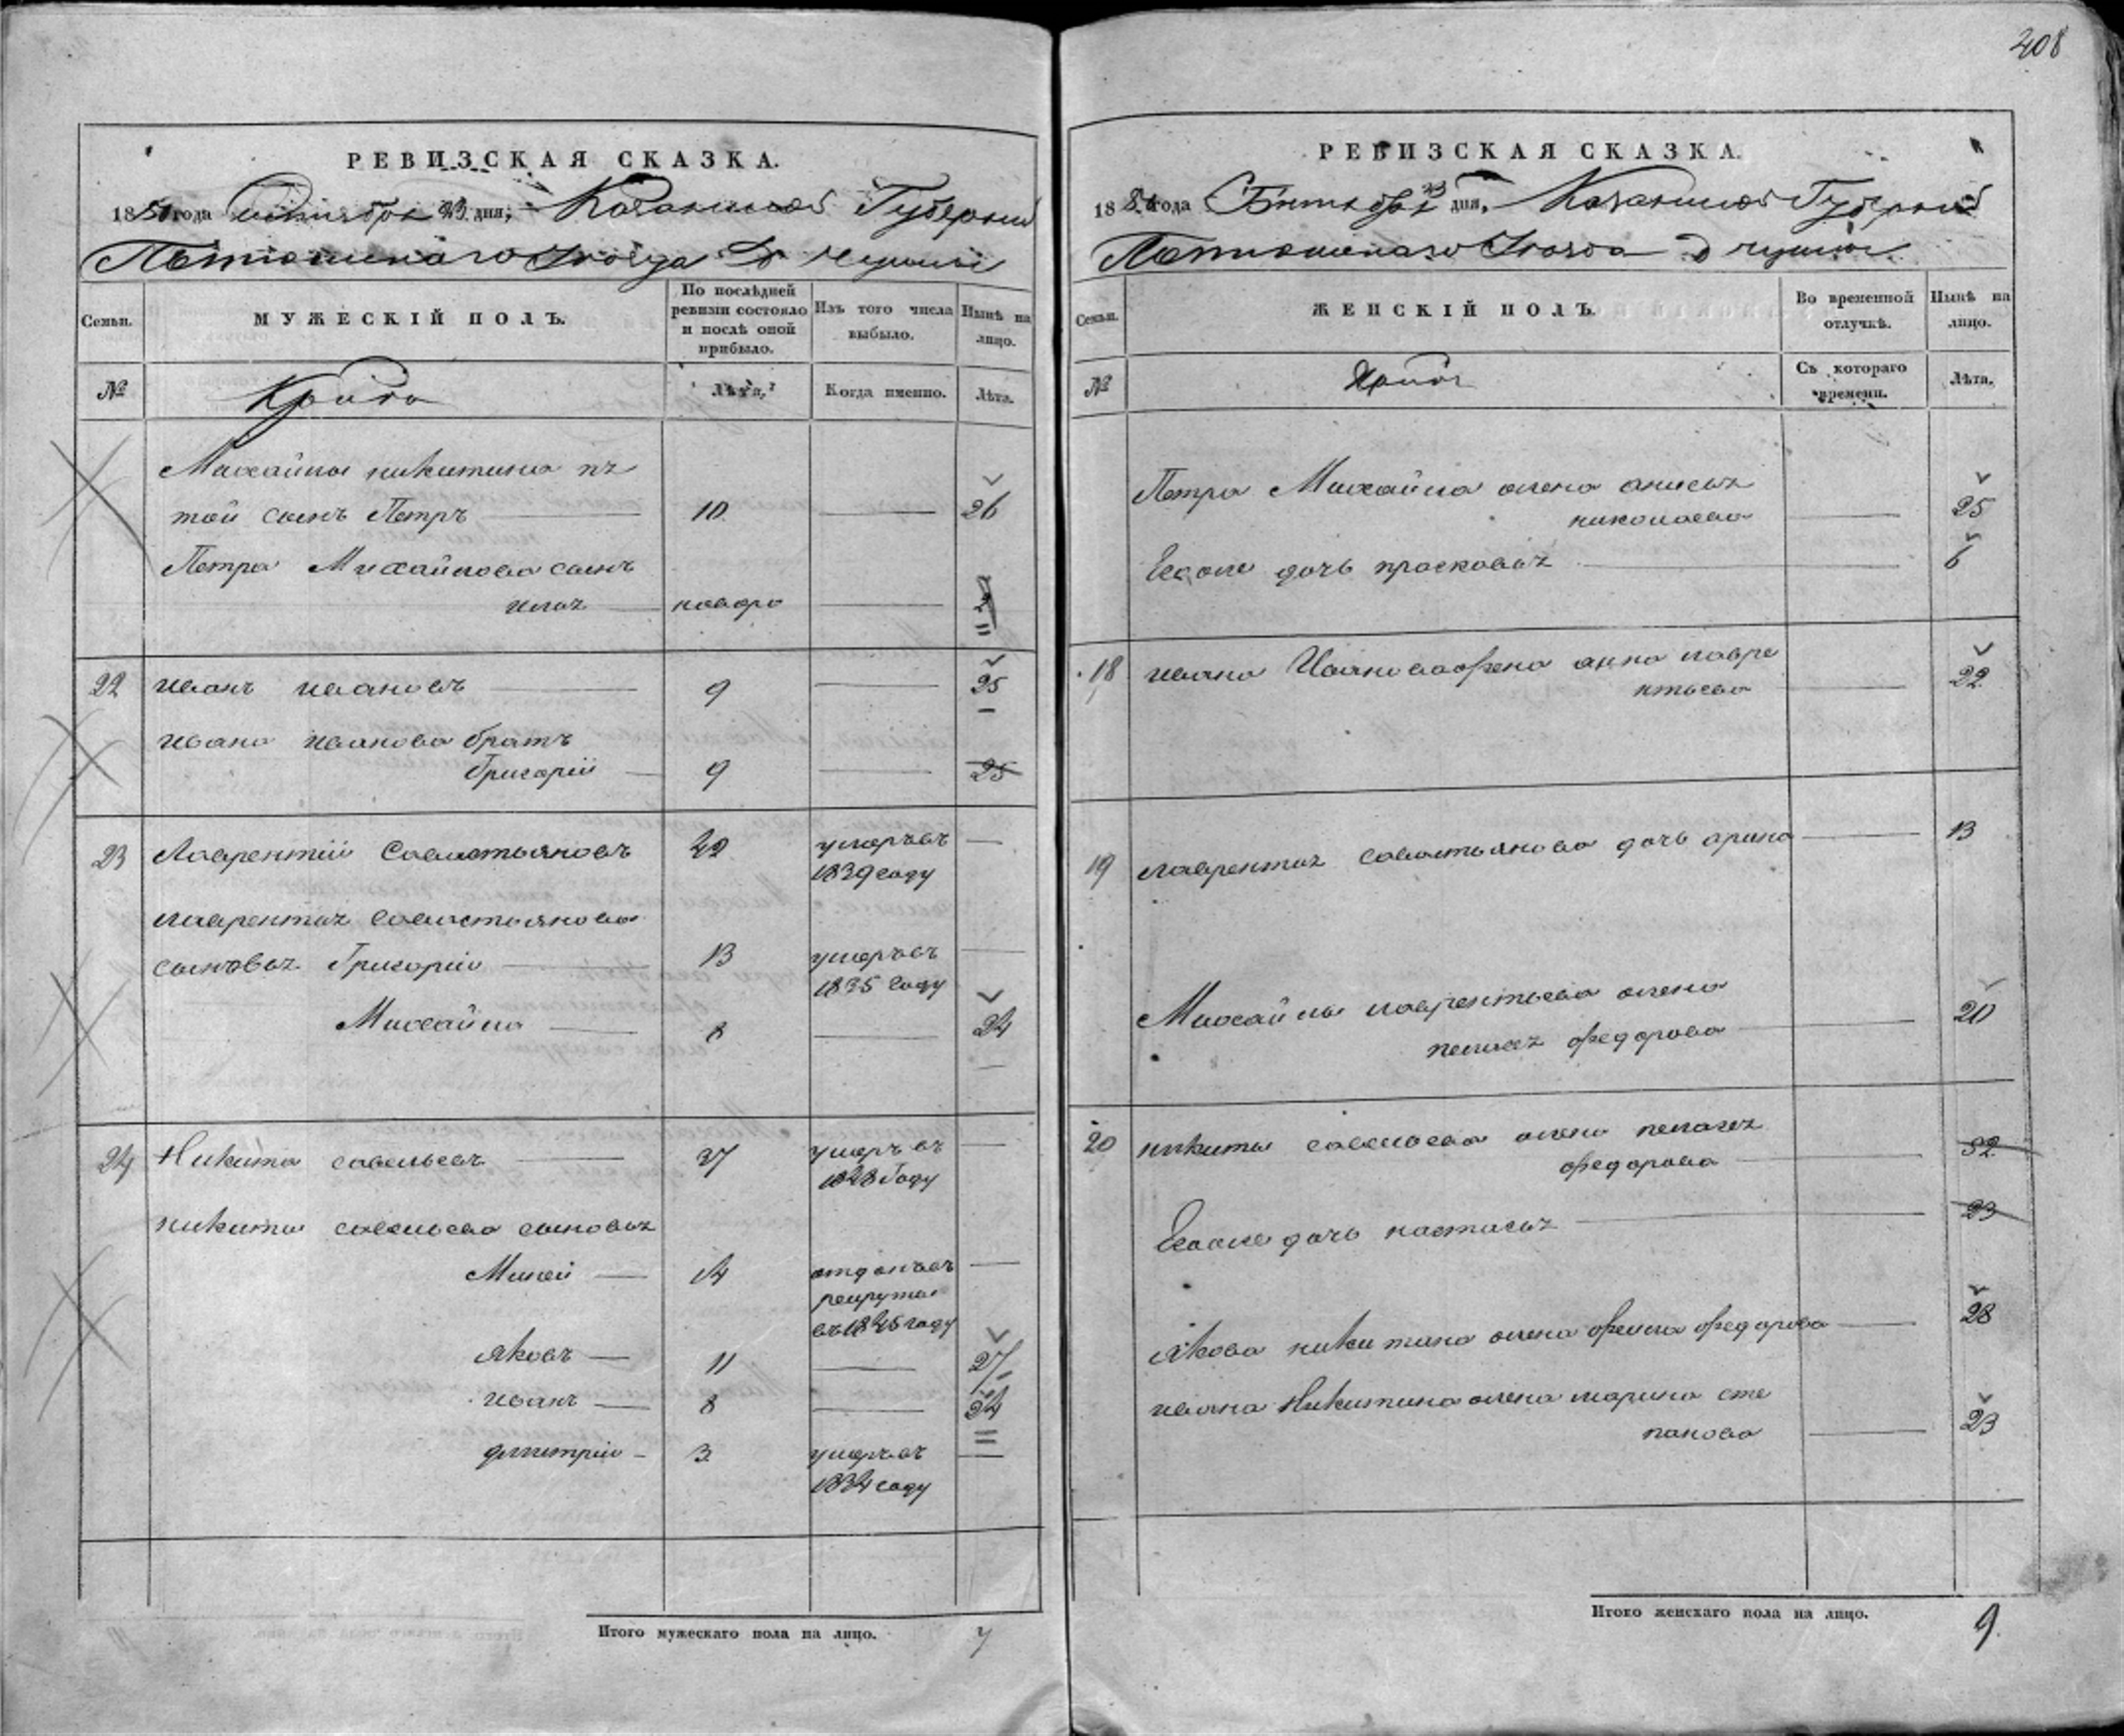 208
РЕВИЗСКАЯ СКАЗКА.
1850 года Октября 23 дня, Казанской Губернии
Тетюшскаго Уезда Д
СЕМЬИ.
МУЖЕСКІЙ ПОЛЪ.
По послѣдней ревизіи состояло и послѣ оной прибыло.
Изъ того числа выбыло.
Нынѣ на лицо.
№
Лѣта.
Когда именно.
Лѣта.
Михайлы никитина пя
той сынъ Петръ 10 26
Петра Михайлова сынъ
илья
22 иванъ ивановъ 9 25
ивана иванова братъ
Григорій 9 25
23 Лаврентій Савастьяновъ 42 умеръ въ
1839 году
лаврентья савастьянова
сыновья Григорій 13 умеръ въ
1835 году
Михайла 8 24
24 Никита савельевъ 37 умеръ въ
году
никиты савельева сыновья
Миней 14 отданъ въ
рекруты
въ 1845 году
яковъ 11 27
иванъ 8 24
дмитрій 3 умеръ въ
1834 году
Итого мужескаго пола на лицо. 7
РЕВИЗСКАЯ СКАЗКА.
1850 года 23 дня, Казанской Губернии
Тетюшскаго Уезда д
Семьи.
ЖЕНСКІЙ ПОЛЪ.
Во временной отлучкѣ.
Нынѣ на лицо.
№
Съ котораго времени.
Лѣта.
Петра Михайла жена анисья
николаева 25
Ево же дочь прасковья 6
18 ивана Иванова жена анна лавре
нтьева 22
19 лаврентья савастьянова дочь арина 13
Михайлы лаврентьева жена
пелагея федорова 20
20 никиты савельева жена пелагея
федорова 52
Ево же дочь настасья 23
якова никитина жена фекла федорова 28
ивана Никитина жена марина сте
панова 23
Итого женскаго пола на лицо. 9